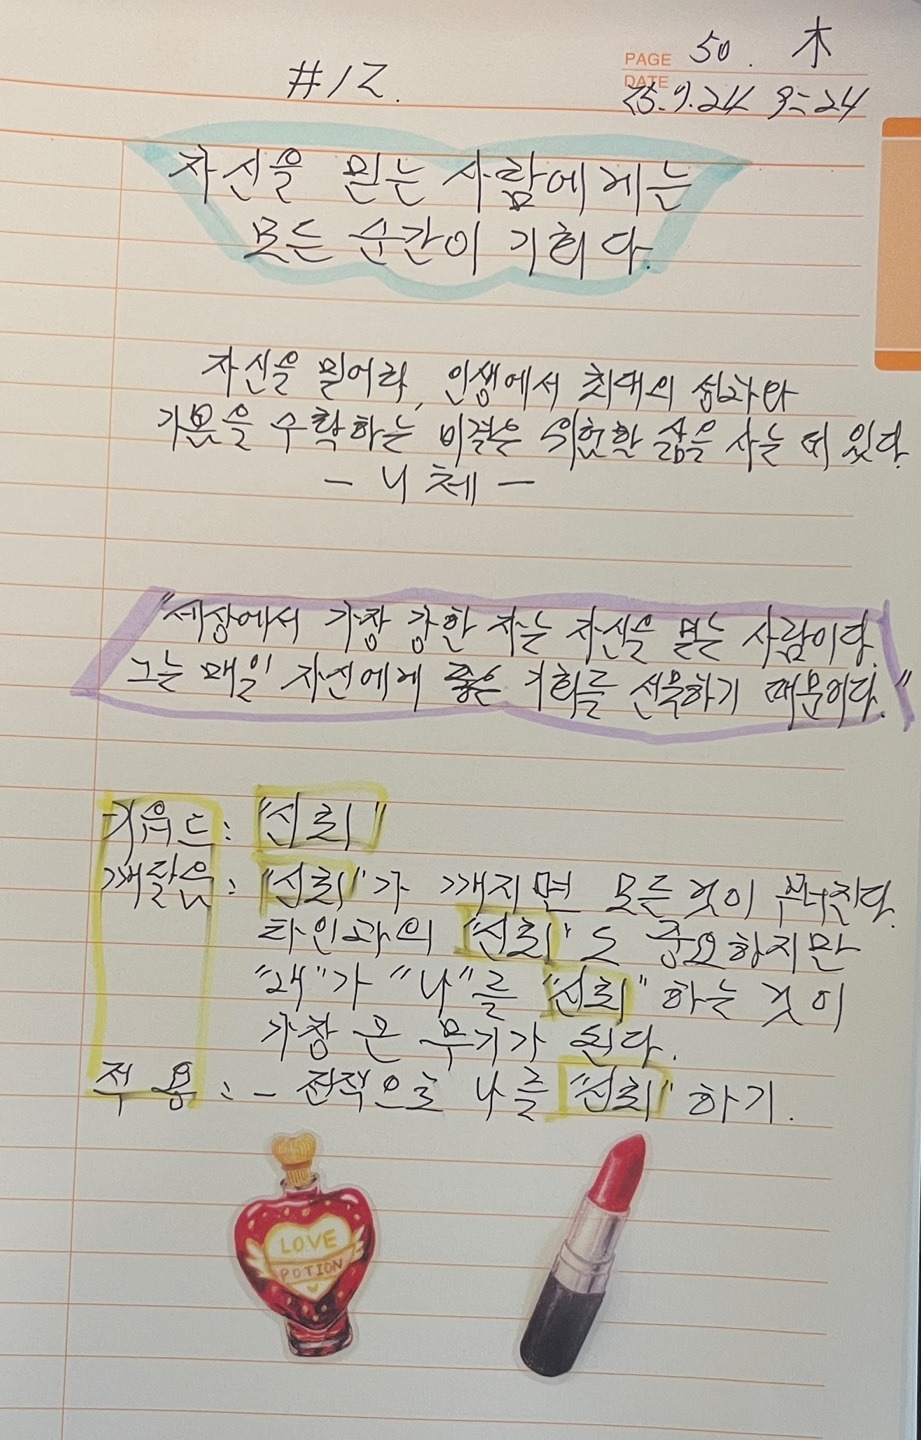 #12.
PAGE 50. 木
DATE 25.9.24 9:24
자신을 믿는 사람에게는
모든 순간이 기회다.
자신을 믿어라, 인생에서 최대의 성과와
기쁨을 수확하는 비결은 위험한 삶을 사는 데 있다.
- 니체 -
"세상에서 가장 강한 자는 자신을 믿는 사람이다.
그는 매일 자신에게 좋은 기회를 선물하기 때문이다."
키워드: "신뢰"
깨달음: "신뢰"가 깨지면 모든 것이 무너진다.
타인과의 "신뢰"도 중요하지만
"내"가 "나"를 "신뢰"하는 것이
가장 큰 무기가 된다.
적용: - 전적으로 나를 "신뢰"하기.
LOVE
POTION